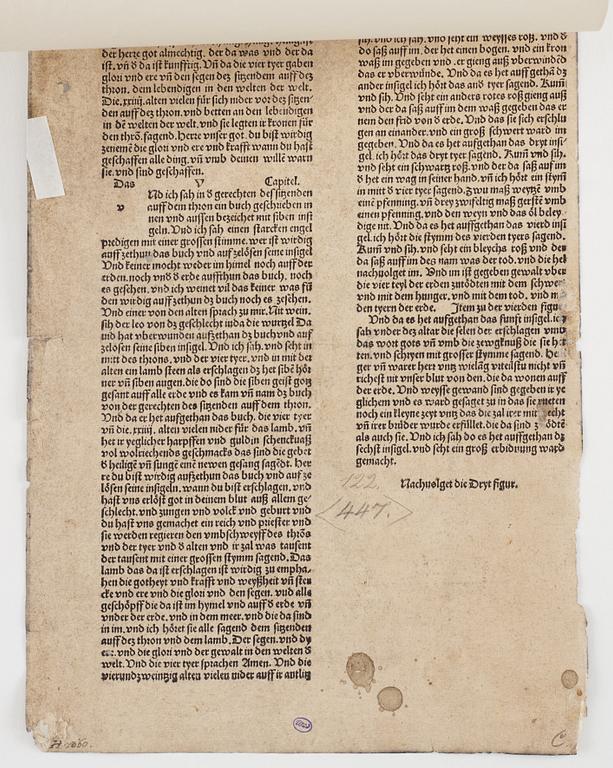 der herre got almechtig. der da was vnd der da
ist. vñ ď da ist kunfftig. Vñ da die vier tyer gaben
glori vnd ere vñ den segen dez sitzendem auff dez
thron. dem lebendigen in den welten der welt.
Die .xxiiij. alten vielen für sich nider vor dez sitzen-
den auff dez thron. vnd betten an den lebendigen
in dē welten der welt. vnd sie legten ir kronen für
den thrō. sagend. Herre vnser got. du bist wirdig
zenemē die glori vnd ere vnd krafft wann du hast
geschaffen alle ding. vñ vmb deinen willē warn
sie. vnd sind geschaffen.
Das V Capitel.
Nd ich sah in ď gerechten des sitzenden
v auff dem thron ein buch geschrieben in
nen vnd aussen bezeichet mit siben inst
geln. Vnd ich sah einen starcken engel
predigen mit einer grossen stimme. wer ist wirdig
auff zethun das buch vnd auf zelösen seine insigel
Vnd keiner mocht weder im himel noch auff der
erden. noch vnď ď erde auffthun das buch. noch
es gesehen. vnd ich weinet vil das keiner was fū
den wirdig auff zethun dz buch noch es zesehen.
Vnd einer von den alten sprach zu mir. Nit wein.
sih der leo von dz geschlecht iuda die wurtzel Da
uid hat vberwunden auffzethun dz buch vnd auff
zelösen seine siben insigel. Vnd ich sah. vnd seht in
mitt des throns. vnd der vier tyer. vnd in mit der
alten ein lamb steen als erschlagen dz het sibē hör
ner vñ siben augen. die do sind die siben geist gotz
gesant auff alle erde vnd es kam vñ nam dz buch
von der gerechten des sitzenden auff dem thron.
Vnd da er het auffgethan das buch. die vier tyer
vñ die .xxiiij. alten vielen nider für das lamb. vñ
het ir yeglicher harpffen vnd guldin schenckuaß
vol wolriechends geschmacks das sind die gebet
ď heiligē vñ sungē eine newen gesang sagēdt. Her
re du bist wirdig auffzethun das buch vnd auf ze
lösen seine insigeln. wann du bist erschlagen. vnd
hast vns erlöst got in deinem blut auß allem ge-
schlecht. vnd zungen vnd volck vnd geburt vnd
du hast vns gemachet ein reich vnd priester vnd
sie werden regieren den vmbschweyff des thrōs
vnd der tyer vnd ď alten vnd ir zal was tausent
der tausent mit einer grossen stymm sagend. Das
lamb das da ist erschlagen ist wirdig zu empha-
hen die gotheyt vnd krafft vnd weyßheit vñ ster
cke vnd ere vnd die glori vnd den segen. vnd alle
geschöpff die da ist im hymel vnd auff ď erde vñ
vnder der erde. vnd in dem meer. vnd die da sind
in im. vnd ich höret sie alle sagend dem sitzenden
auff dez thron vnd dem lamb. Der segen. vnd dy
ere. vnd die glori vnd der gewalt in den welten ď
welt. Vnd die vier tyer sprachen Amen. Vnd die
vierundzweintzig alten vielen nider auff ir antlitz
vnd ich sah. vnd seht ein weysses roß. vnd ď
do saß auff im. der het einen bogen. vnd ein kron
waß im gegeben vnd. er gieng auß vberwindēd
das er vberwünde. Vnd da es het auffgethā dz
ander insigel ich hört das and tyer sagend. Kum
vnd sih. Vnd seht ein anders rotes roß gieng auß
vnd der da saß auff im dem waß gegeben das er
nem den frid von ď erde. Vnd das sie sich erschlu
gen an einander. vnd ein groß schwert ward im
gegeben. Vnd da es het auffgethan das dryt insi
gel. ich hört das dryt tyer sagend. Kum vnd sih.
vnd seht ein schwartz roß. vnd der da saß auff im
ď het ein wag in seiner hand. vñ ich hört ein stym
in mitt ď vier tyer sagend. Zwu maß weytzē vmb
eine pfenning. vñ drey zwifeltig maß gerstē vmb
einen pfenning. vnd den weyn vnd das öl beley
dige nit. Vnd da es het auffgethan das vierd insi
gel. ich hört die stymm des vierden tyers sagend.
Kum vnd sih. vnd seht ein bleychs roß vnd der
da saß auff im des nam was der tod. vnd die hel
nachuolget im. Vnd im ist gegeben gewalt vber
die vier teyl der erden zutödten mit dem schwe
vnd mit dem hunger. vnd mit dem tod. vnd m
den tyern der erde. Item zu der vierden figur
Vnd da es het auffgethan das funft insigel. ich
sah vnder dez altar die selen der erschlagen vmb
das wort gots vñ vmb die zewgknuß die sie h
ten. vnd schryen mit grosser stymme sagend. He
ger vñ warer herr vntz wielāg vrteilstu nicht vñ
richest nit vnser blut von den. die da wonen auff
der erde. Vnd weysse gewand sind gegeben ir ye
glichem vnd es ward gesaget zu in das sie rueten
noch ein kleyne zeyt vntz das die zal irer mit echt
vñ irer brüder wurde erfüllet. die da sind z ödtē
als auch sie. Vnd ich sah do es het auffgethan dz
sechst insigel. vnd seht ein groß erbidung ward
gemacht.
Nachuolget die Dryt figur.
122.
447.
C